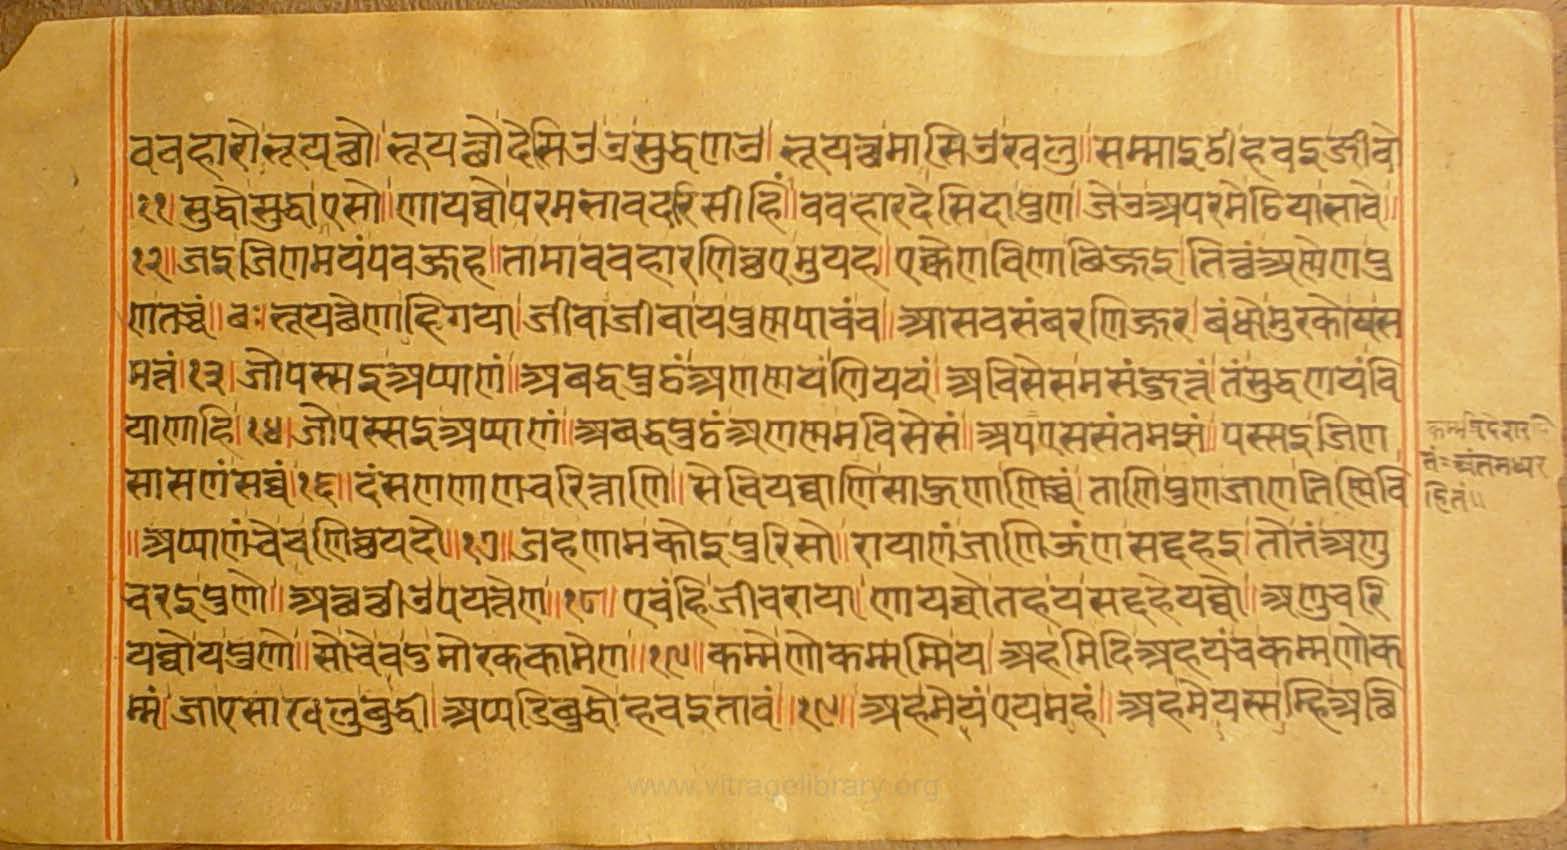 ववहारो भूयत्थो। भूयत्थो देसिउ उ सुद्धणउ। भूयत्थमासिउ खलु॥ सम्माइठी हवइ जीवो
।११। सुद्धो सुद्धाएसो॥ णायव्वो परमभावदरिसीहिं॥ ववहारदेसिदा पुण। जे उ अपरमे ठिया भावे॥
१२॥ जइ जिणमयं पवज्जह॥ ता मा ववहारणिच्छए मुयह। एक्केण विणा छिज्जइ। तित्थं अण्णेण पु
ण तच्चं॥ भूयत्थेणाहिगया। जीवाजीवा य पुण्णपावं च॥ आसवसंवरणिज्जर। बंधो मुरकोय स
मत्तं।१३। जो पस्सइ अप्पाणं॥ अबद्धपुठं अणण्णयं णिययं। अविसेसमसंजुत्तं। तं सुद्धणयं वि
याणाहि।१४। जो पस्सइ अप्पाणं॥ अबद्धपुठं अणण्णमविसेसं॥ अपएससंतमझं॥ पस्सइ जिण
सासणं सव्वं।१६॥ दंसणणाणचरित्ताणि॥ सेवियव्वाणि साहुणा णिच्चं। ताणि पुण जाण तिण्णिवि
॥अप्पाणं चेव णिच्छयदो॥१७॥ जह णाम कोइ पुरिसो॥ रायाणं जाणिऊण सद्दहइ। तो तं अणु
चरइ पुणो॥ अत्थत्थीउ पयत्तेण॥१८॥ एवं हि जीवराया। णायव्वो तह य सद्दहेयव्वो॥ अणुचरि
यव्वो य पुणो॥ सो चेव दु मोरककामेण॥१९॥ कम्मे णोकम्मम्मि य। अहमिदि अहयं च कम्म णोक
म्मं। जा एसा खलु बुद्धी। अप्पडिबुद्धो हवइ तावं॥१९॥ अहमेयं एयमहं॥ अहमेयस्सम्हि अछि
हितं॥
www.vitragelibrary.org